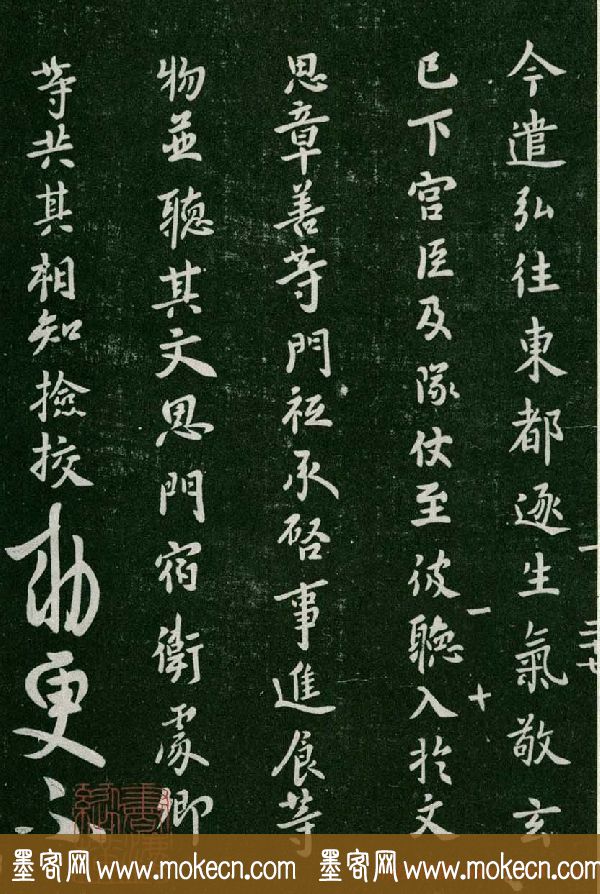 今遣弘往東都逐生氣敬玄
已下官臣及隊仗至彼聽入於文
思章善等門祗承啓事進食等
物並聽其文思門宿衛處卿
等共其相知撿挍勅更
一 二十七
一 十
墨客网 www.mokecn.com 墨客网 www.mokecn.com